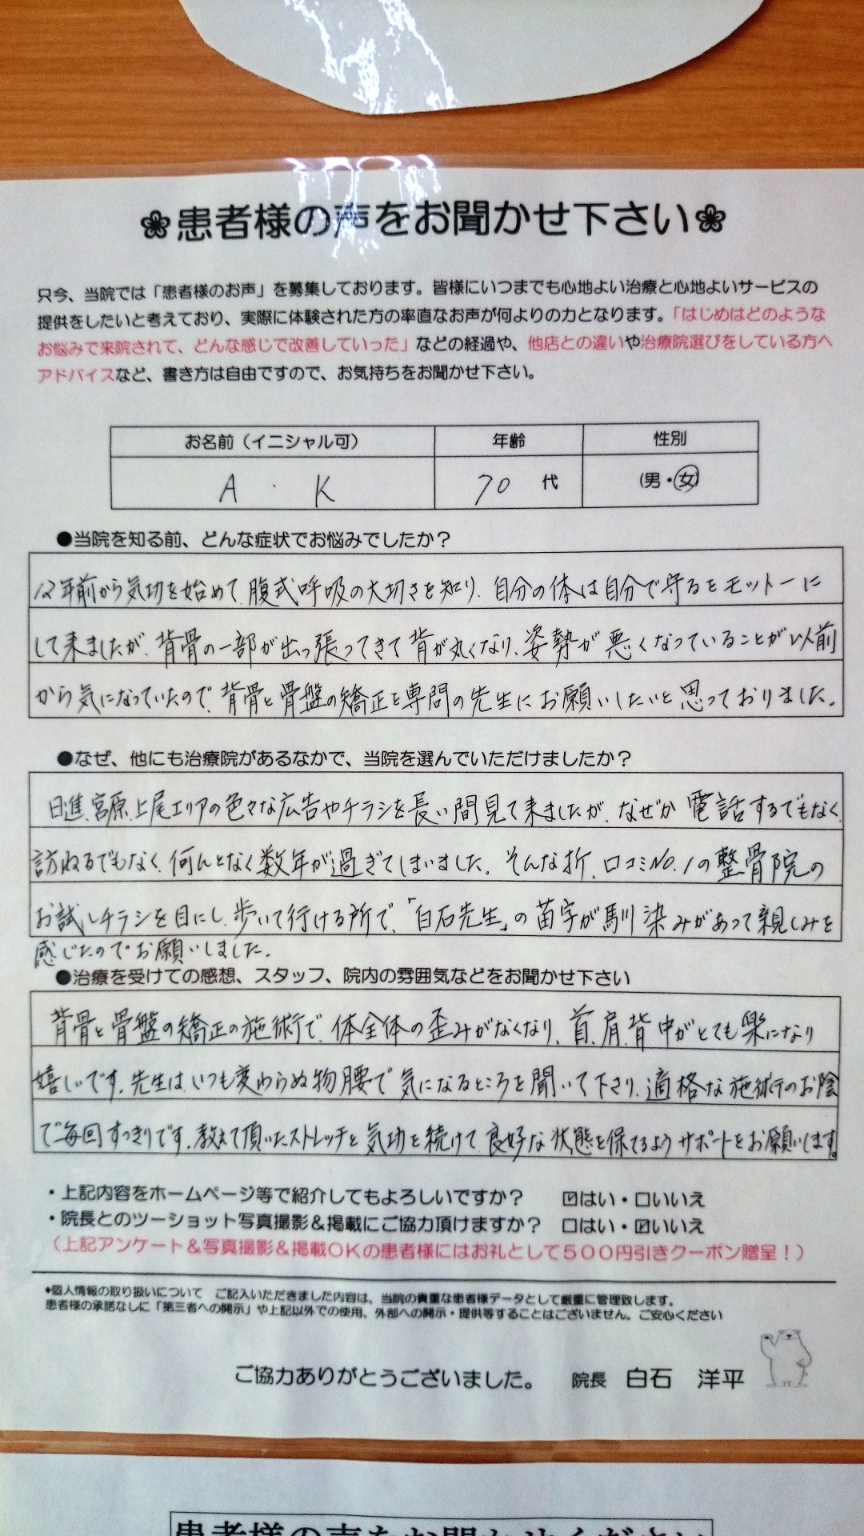 ❀患者様の声をお聞かせ下さい❀
只今、当院では「患者様のお声」を募集しております。皆様にいつまでも心地よい治療と心地よいサービスの
提供をしたいと考えており、実際に体験された方の率直なお声が何よりの力となります。「はじめはどのような
お悩みで来院されて、どんな感じで改善していった」などの経過や、他店との違いや治療院選びをしている方へ
アドバイスなど、書き方は自由ですので、お気持ちをお聞かせ下さい。
お名前（イニシャル可） 年齢 性別
A・K 70 代 (男・女)
●当院を知る前、どんな症状でお悩みでしたか？
12年前から気功を始めて、腹式呼吸の大切さを知り、自分の体は自分で守るをモットーに
して来ましたが、背骨の一部が出っ張ってきて背が丸くなり、姿勢が悪くなっていることが以前
から気になっていたので、背骨と骨盤の矯正を専門の先生にお願いしたいと思っておりました。
●なぜ、他にも治療院があるなかで、当院を選んでいただけましたか？
日進、宮原、上尾エリアの色々な広告やチラシを長い間見て来ましたが、なぜか電話するでもなく、
訪ねるでもなく、何んとなく数年が過ぎてしまいました。そんな折、口コミNO.1の整骨院の
お試しチラシを目にし、歩いて行ける所で、「白石先生」の苗字が馴染みがあって親しみを
感じたのでお願いしました。
●治療を受けての感想、スタッフ、院内の雰囲気などをお聞かせ下さい
背骨と骨盤の矯正の施術で、体全体の歪みがなくなり、首、肩、背中がとても楽になり
嬉しいです。先生は、いつも変わらぬ物腰で気になるところを聞いて下さり、適格な施術のお陰
で毎回すっきりです。教えて頂いたストレッチと気功を続けて良好な状態を保てるようサポートをお願いします。
・上記内容をホームページ等で紹介してもよろしいですか？ ☑はい・□いいえ
・院長とのツーショット写真撮影＆掲載にご協力頂けますか？ □はい・☑いいえ
（上記アンケート＆写真撮影＆掲載OKの患者様にはお礼として５００円引きクーポン贈呈！）
◆個人情報の取り扱いについて ご記入いただきました内容は、当院の貴重な患者様データとして厳重に管理致します。
患者様の承諾なしに「第三者への開示」や上記以外での使用、外部への開示・提供等することはございません。ご安心ください
ご協力ありがとうございました。 院長 白石 洋平
患者様の声をお聞かせください